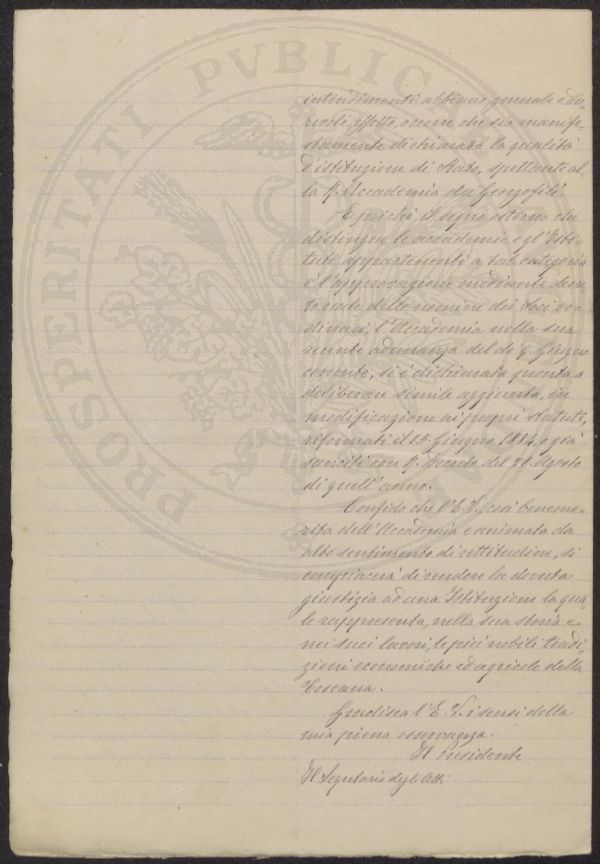 PROSPERITATI PVBLICAE
intendimenti abbiano generale e du-
revole effetto, occorre che sia manife-
stamente dichiarata la qualità
d'istituzione di Stato, spettante al-
la R. Accademia dei Georgofili.
E poichè, il segno esterno che
distingue le accademie e gl'Isti-
tuti appartenenti a tal categoria
è l'approvazione mediante decre-
to reale delle nomine dei Soci or-
dinari, l'Accademia nella sua
recente adunanza del dì 9. Giugno
corrente, si è dichiarata pronta a
deliberare simile aggiunta, in
modificazione ai propri statuti,
riformati il 15 Giugno e già
sanciti con R. Decreto del 21. Agosto
di quell'anno.
Confido che l'E. V., così beneme-
rita dell'Accademia e animata da
alto sentimento di rettitudine, si
compiacerà di rendere la dovuta
giustizia ad una Istituzione la qua-
le rappresenta, nella sua storia e
nei suoi lavori, le più nobili tradi-
zioni economiche ed agricole della
Toscana.
Gradisca l'E. V. i sensi della
mia piena osservanza.
Il Presidente
Il Segretario degli Atti